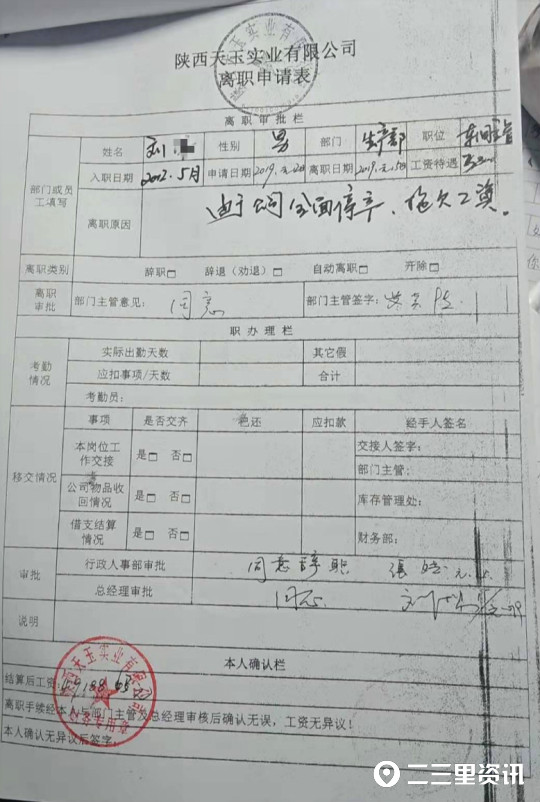 陕西天玉实业有限公司
离职申请表
离职审批栏
部门或员工填写
姓名 刘 性别 男 部门 生产部 职位 车间主管
入职日期 2012.5月 申请日期 离职日期 工资待遇
离职原因 由于公司全面停产、拖欠工资。
离职类别 辞职□ 辞退(劝退)□ 自动离职□ 开除□
离职审批 部门主管意见: 同意 部门主管签字:
职办理栏
考勤情况
实际出勤天数 其它假
应扣事项/天数 合计
考勤员:
移交情况
事项 是否交齐 已还 应扣款 经手人签名
本岗位工作交接 是□ 否□ 交接人签字:
部门主管:
公司物品收回情况 是□ 否□ 库存管理处:
借支结算情况 是□ 否□ 财务部:
审批
行政人事部审批 同意辞职
总经理审批 同意
说明
本人确认栏
结算后工资:
离职手续经本人与部门主管及总经理审核后确认无误，工资无异议！
本人确认无异议后签字:
二三里资讯